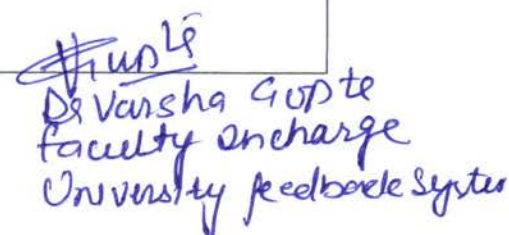 Dr Varsha Gupte
faculty incharge
University feedback System